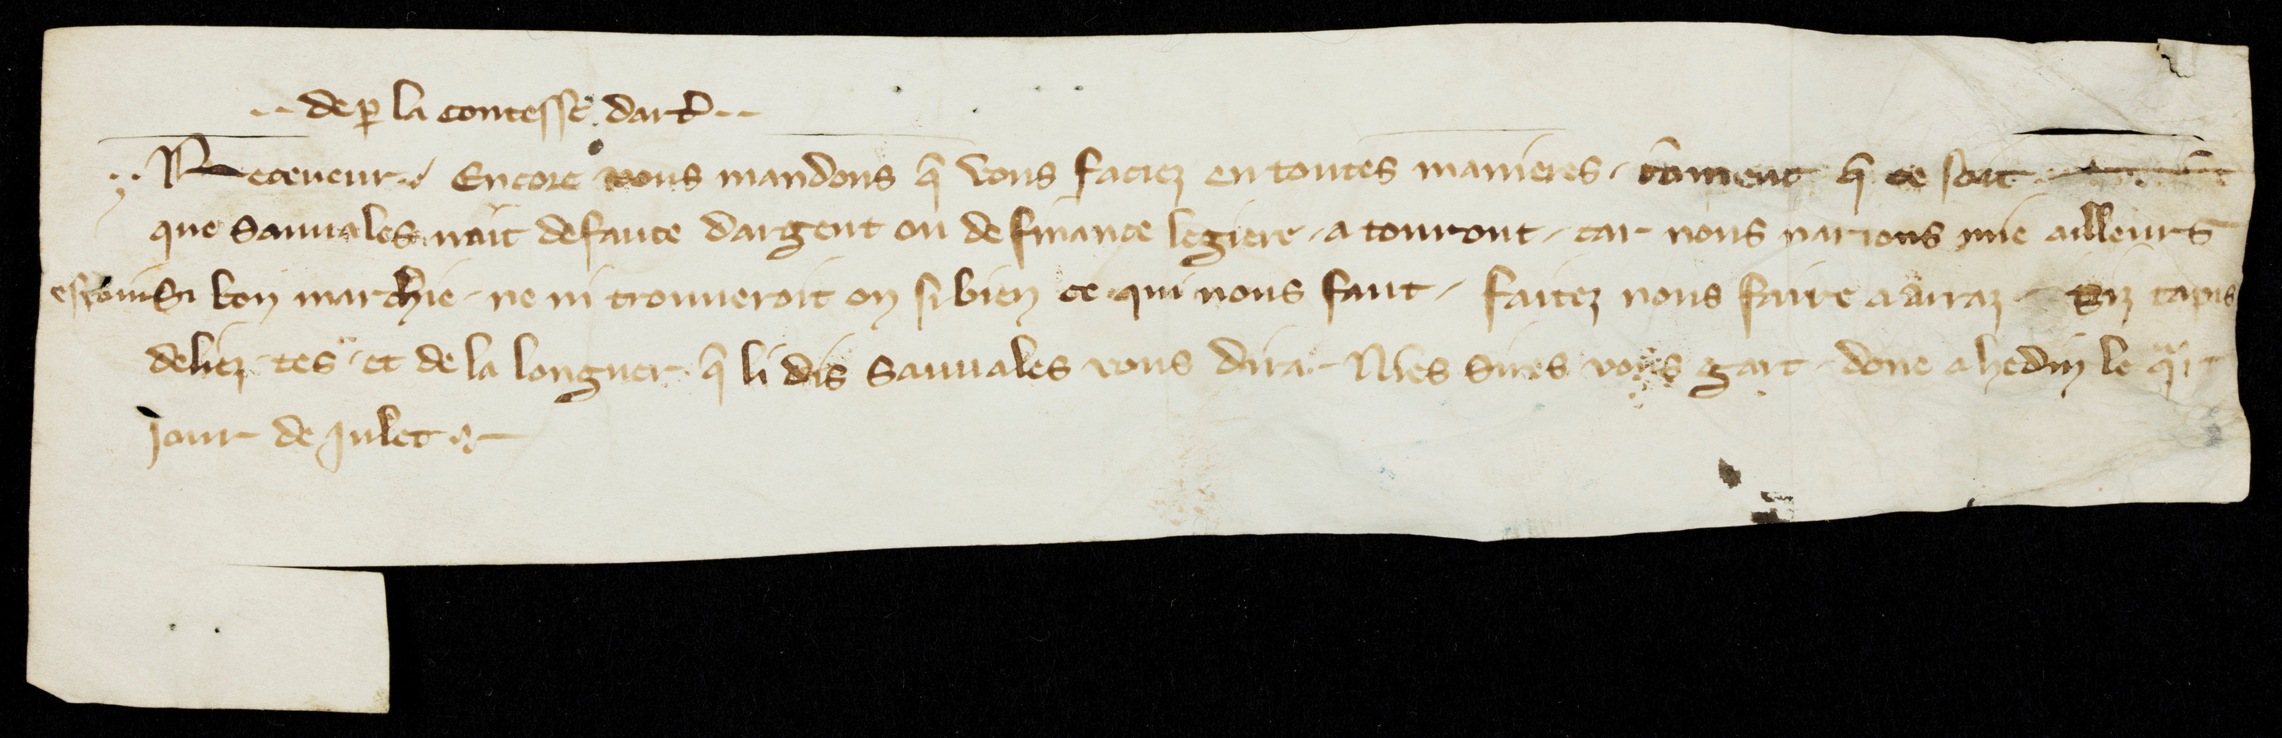 de p la contesse dart
Receveur Encore vous mandons q̄ vous faciez en toutes manieres comment q̄ ce soit
que Sauuales nait defaute dargent ou de finance legiere a tourout car nous narions mie ailleurs
si bon marchie ne ni trouueroit on si bien ce qui nous faut faitez nous faire a arraz tapis
et de la longuer q̄ li dis Sauuales vous dira Nres Sires vous gart done a hedin le
jour de Julet